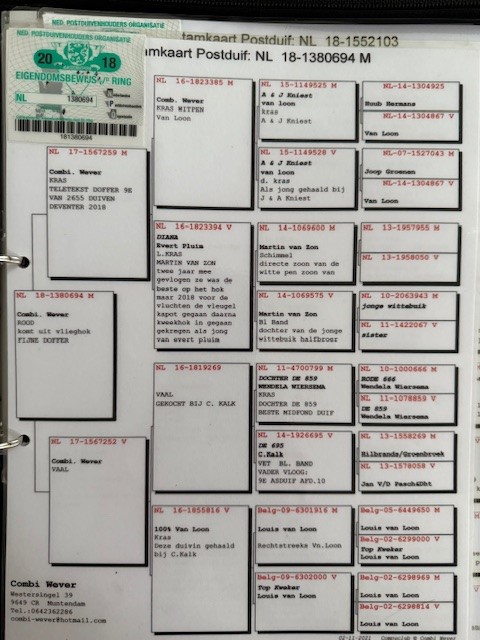 NED. POSTDUIVENHOUDERS ORGANISATIE
tamkaart Postduif: NL 18-1552103
NED. POSTDUIVENHOUDERS ORGANISATIE
20 18
EIGENDOMSBEWIJS RING
NL 1380694
181380694
tamkaart Postduif: NL 18-1380694 M
NL 18-1380694 M
Combi. Wever
ROOD
komt uit vlieghok
FIJNE DOFFER
NL 17-1567259 M
Combi. Wever
KRAS
TELETEKST DOFFER 9E
VAN 2655 DUIVEN
DEVENTER 2018
NL 17-1567252 V
Combi. Wever
VAAL
NL 16-1823385 M
Comb. Wever
KRAS WITPEN
Van Loon
NL 16-1823394 V
DIANA
Evert Pluim
L.KRAS
MARTIN VAN ZON
twee jaar mee
gevlogen ze was de
beste op het hok
maar 2018 voor de
vluchten de vleugel
kapot gegaan daarna
kweekhok in gegaan
gekregen als jong
van evert pluim
NL 16-1819269
VAAL
GEKOCHT BIJ C. KALK
NL 16-1855816 V
100% Van Loon
Kras
Deze duivin gehaald
bij C.Kalk
NL 15-1149525 M
A & J Kniest
van loon
kras
A & J Kniest
NL 15-1149528 V
A & J Kniest
van loon
d. kras
Als jong gehaald bij
J & A Kniest
NL 14-1069600 M
Martin van Zon
Schimmel
directe zoon van de
witte pen zoon van
NL 14-1069575 V
Martin van Zon
Bl Band
dochter van de jonge
wittebuik halfbroer
NL 11-4700799 M
DOCHTER DE 859
WENDELA WIERSEMA
KRAS
DOCHTER DE 859
BESTE MIDFOND DUIF
NL 14-1926695 V
DE 695
C.Kalk
VET BL. BAND
VADER VLOOG:
9E ASDUIF AFD.10
Belg-09-6301916 M
Louis van Loon
Rechtstreeks Vn.Loon
Belg-09-6302000 V
Top Kweker
Louis van Loon
NL-14-1304925
Huub Hermans
NL-14-1304867 V
Van Loon
NL-07-1527043 M
Joop Groenen
NL-14-1304867 V
Van Loon
NL 13-1957955 M
NL 13-1958050 V
NL 10-2063943 M
jonge wittebuik
NL 11-1422067 V
sister
NL 10-1000666 M
RODE 666
Wendela Wiersema
NL 11-1078859 V
DE 859
Wendela Wiersema
NL 13-1558269 M
Hilbrands/Groenbroek
NL 13-1578058 V
Jan V/D Pasch&Dht
Belg-05-6449650 M
Louis van Loon
Belg-02-6299000 V
Top Kweker
Louis van Loon
Belg-02-6298969 M
Louis van Loon
Belg-02-6298814 V
Louis van Loon
Combi Wever
Westersingel 39
9649 CR Muntendam
Tel.:0642362286
combi-wever@hotmail.com
02-11-2021 Compuclub © Combi Wever